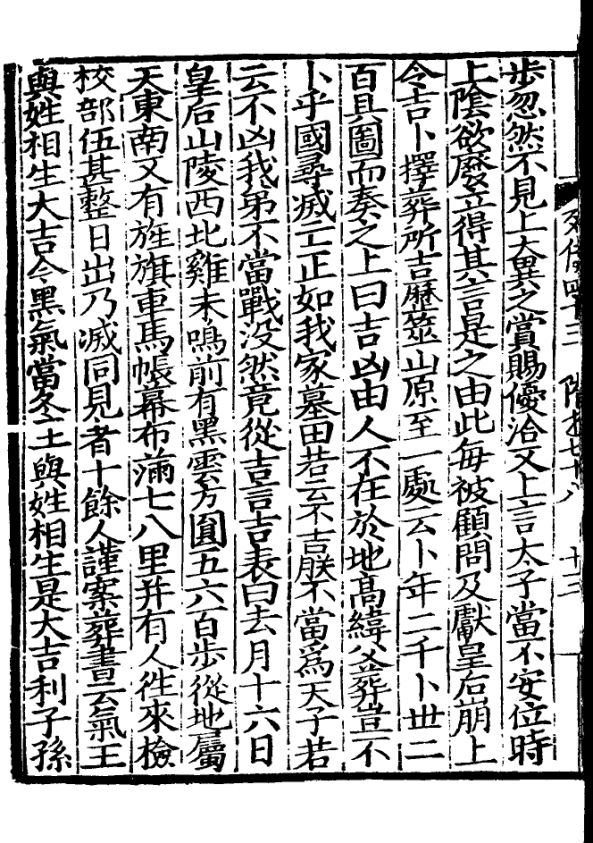 列傳四十三 隋書七十八 十三
步忽然不見上大異之賞賜優洽又上言太子當不安位時
上陰欲廢立得其言是之由此每被顧問及獻皇后崩上
令吉卜擇葬所吉歷筮山原至一處云卜年二千卜世二
百具圖而奏之上曰吉凶由人不在於地高緯父葬豈不
卜乎國尋滅亡正如我家墓田若云不吉朕不當爲天子若
云不凶我弟不當戰没然竟從吉言吉表曰去月十六日
皇后山陵西北雞未鳴前有黑雲方圓五六百步從地屬
天東南又有旌旗車馬帳幕布滿七八里并有人徃來檢
校部伍甚整日出乃滅同見者十餘人謹案葬書云氣王
與姓相生大吉今黑氣當冬王與姓相生是大吉利子孫